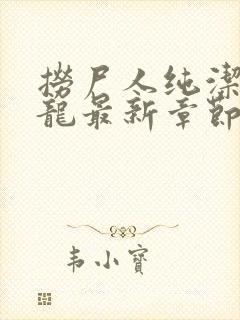 撈尸人纯潔
龍最新章節
韦小寶